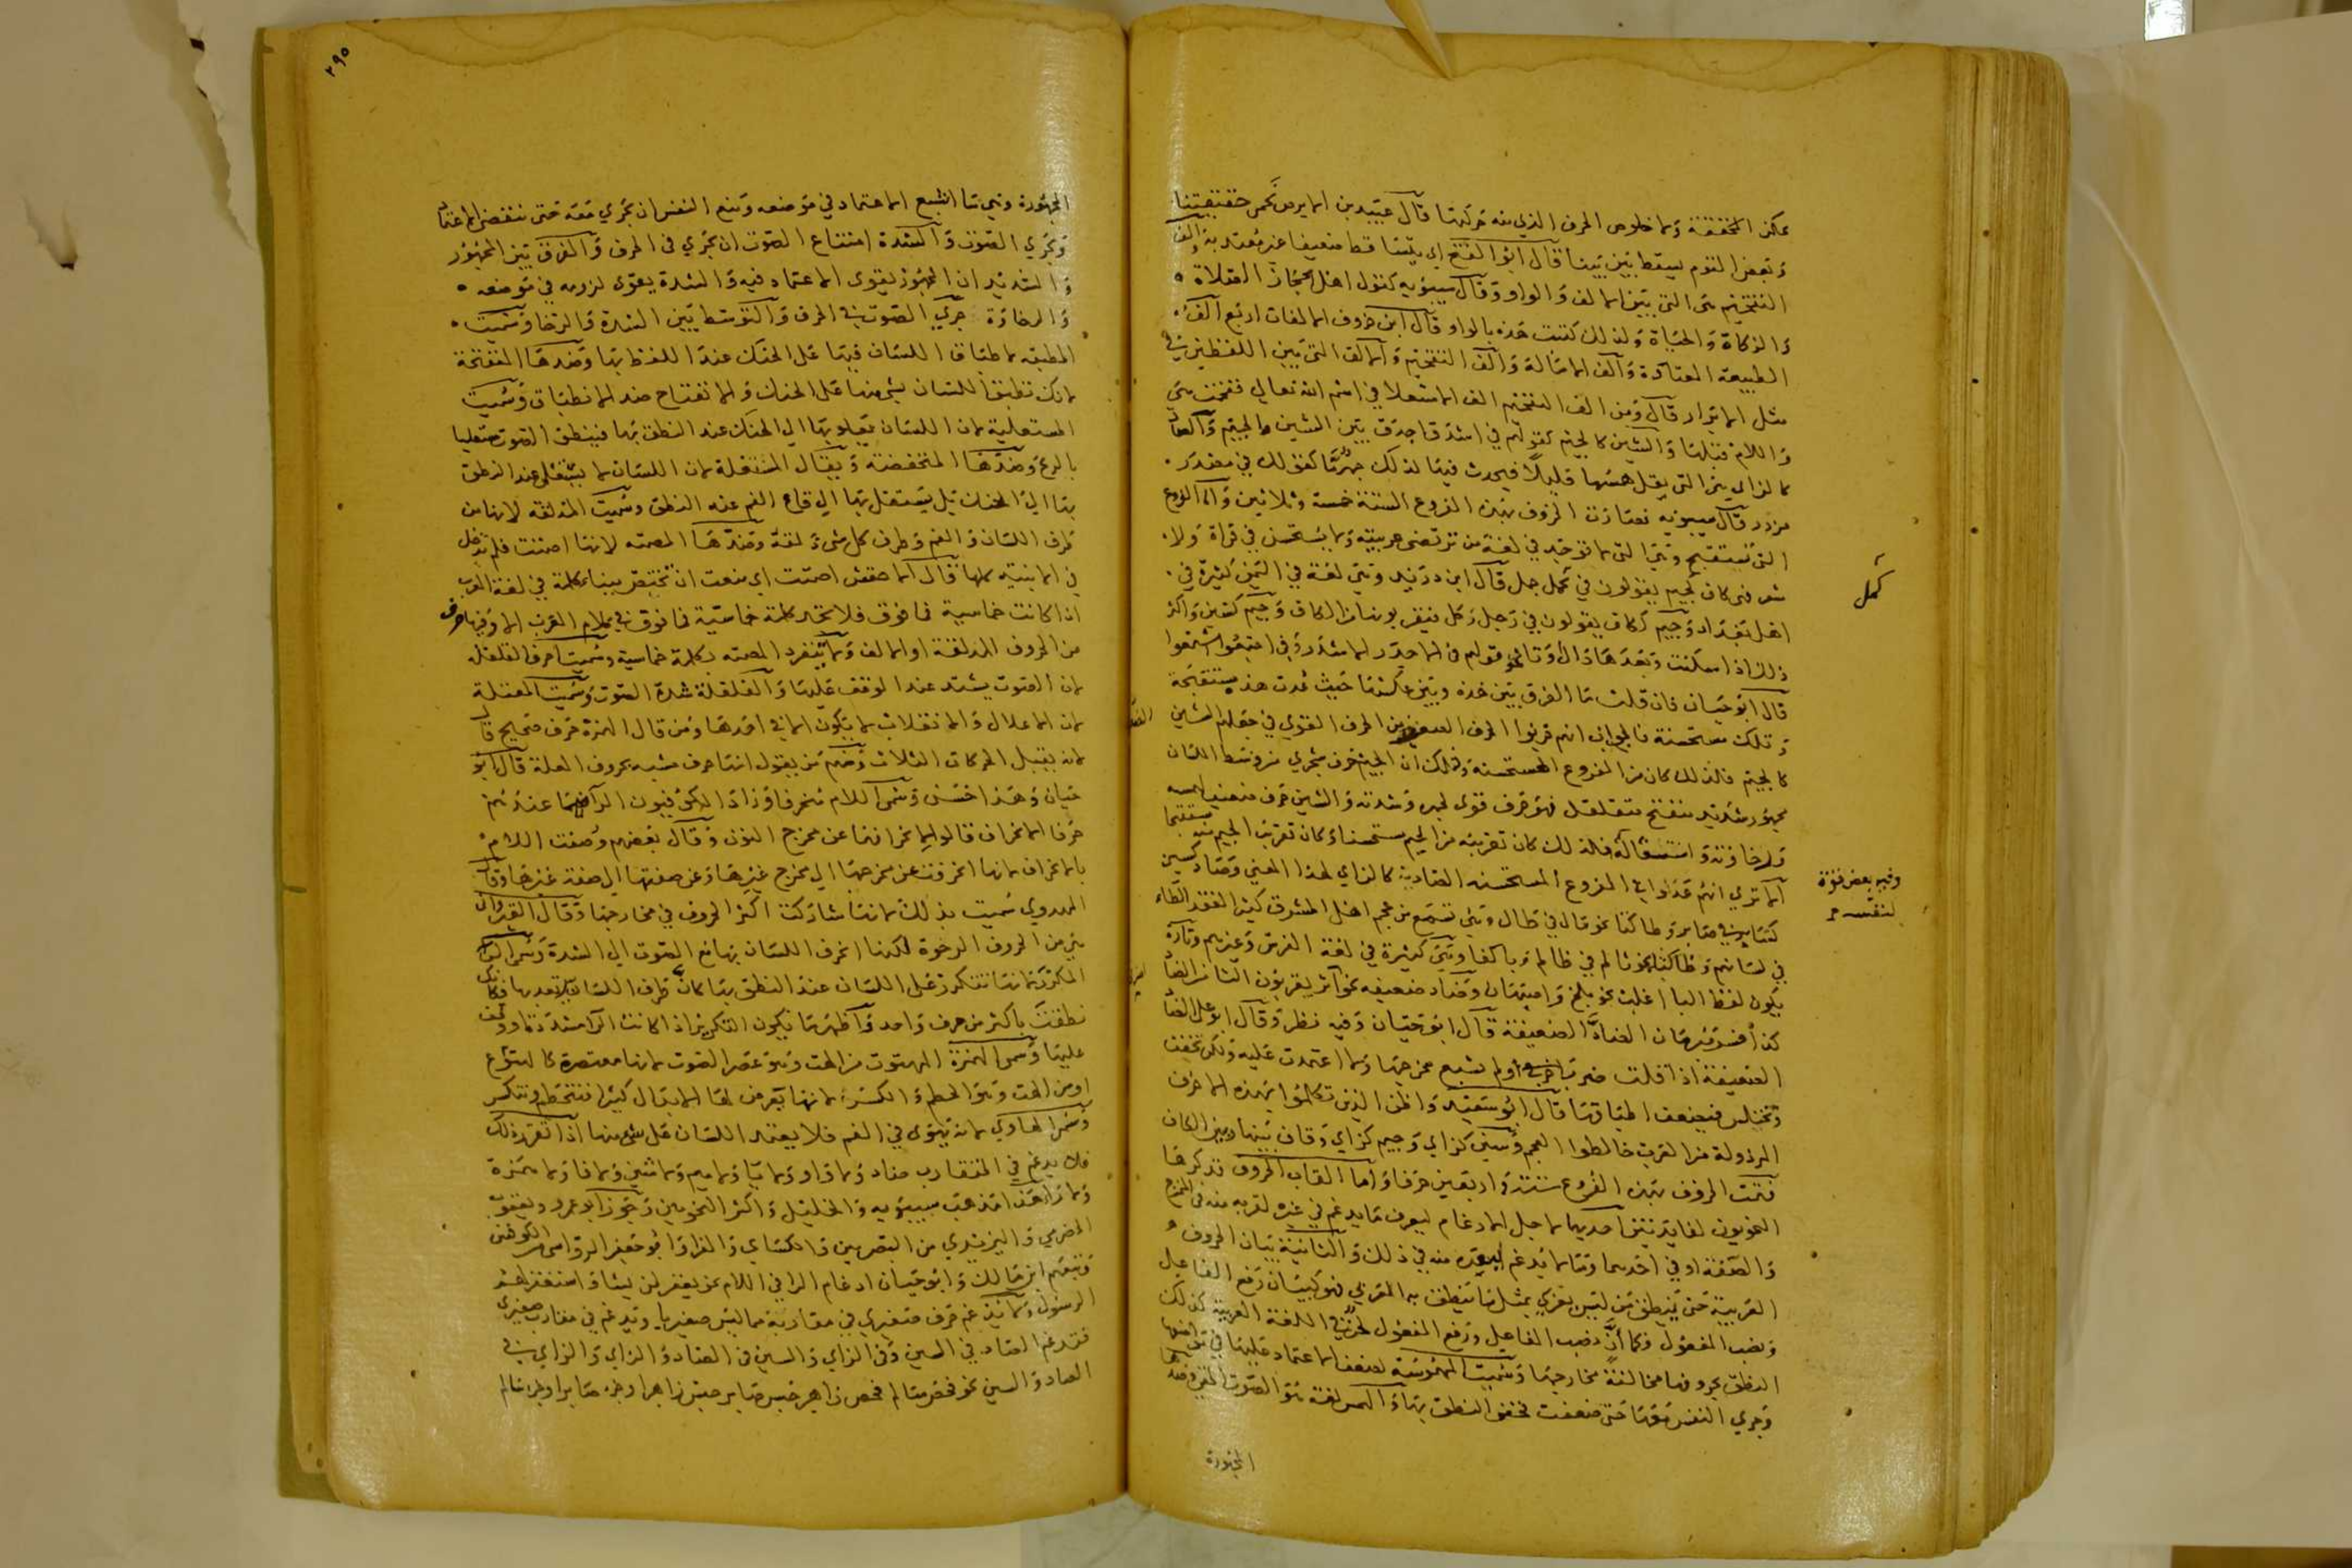 تمكن المخففة ولما خلوص الحرف الذي منه حركتها قال عبيد بن الابرص نحمي حقيقتنا
وبعض القوم يسقط بين بينا قال ابو الفتح اي يتساقط ضعيفا غير معتد به والف
التفخيم هي التي بين الالف والواو وقال سيبويه كقول اهل الحجاز الصلاة
والزكاة والحياة ولذلك كتبت هذه بالواو قال ابن خروف الالفات اربع الف
الطبيعة المعتادة والف الامالة والف التفخيم والالف التي بين اللفظين في
مثل الابرار قال ومن الف التفخيم الف الاستعلا في اسم الله تعالى ففخمت هي
واللام قبلها والشين كالجيم كقولهم في اشدق اجدق بين الشين والجيم والصاد
كالزاي هي التي يقل همسها قليلا فيحدث فيها لذلك جهر ما كقولك في مصدر
مزدر قال سيبويه فصارت الحروف بهذه الفروع الستة خمسة وثلاثين والفروع
التي تستقبح وهي التي لا توجد في لغة من ترتضى عربيته ولا يستحسن في قراة ولا
شعر فهي كاف كجيم يقولون في كمل جمل قال ابن دريد وهي لغة في اليمن كثيرة في
اهل بغداد وجيم ككاف يقولون في رجل ركل فيقربونها من الكاف وجيم كشين واكثر
ذلك اذا سكنت وبعدها دال او تا نحو قولهم في الاجدر الاشدر وفي اجتمعوا اشتمعوا
قال ابو حيان فان قلت ما الفرق بين هذه وبين عكسها حيث عدت هذه مستقبحة
وتلك مستحسنة فالجواب انهم قربوا الحرف الضعيف من الحرف القوي في جعلهم الشين
كالجيم فلذلك كان من الفروع المستحسنة وذلك ان الجيم حرف شجري من وسط اللسان
مجهور شديد منفتح متقلقل فهو حرف قوي لجهره وشدته والشين حرف ضعيف لهمسه
ورخاوته واستفاله فلذلك كان تقريبه من الجيم مستحسنا وكان تقريب الجيم منه مستقبحا
الا ترى انهم عدوا في الفروع المستحسنة الصاد كالزاي لهذا المعنى وصاد كسين
كسابر في صابر وطا كتا نحو قال في طال وهي تسمع من عجم اهل المشرق كثيرا لفقد الطاء
في لسانهم وظا كثا نحو ثالم في ظالم وبا كفا وهي كثيرة في لغة الفرس وغيرهم وتارة
يكون لفظ البا اغلب نحو بلخ واصبهان وضاد ضعيفة نحو اثر يقربون الثا من الضاد
كذا فسر مبرمان الضاد الضعيفة قال ابو حيان وفيه نظر وقال ابو علي الضاد
الضعيفة اذا قلت ضرب ولم تشبع مخرجها ولا اعتمدت عليه ولكن تخفف
وتختلس فيضعف اطباقها قال ابو سعيد واظن الذين تكلموا بهذه الاحرف
المرذولة من العرب خالطوا العجم وسين كزاي وجيم كزاي وقاف بينها وبين الكاف
فتمت الحروف بهذه الفروع ستة واربعين حرفا واما القاب الحروف فذكرها
النحويون لفايدتين احديهما لاجل الادغام ليعرف ما يدغم في غيره لقربه منه في المخرج
والصفة او في احدهما وما لا يدغم لبعده منه في ذلك والثانية بيان الحروف
العربية حتى ينطق من ليس بعربي بمثل ما ينطق به العربي فهو كبيان رفع الفاعل
ونصب المفعول فكما ان نصب الفاعل ورفع المفعول لحن في اللغة العربية كذلك
النطق بحروفها مخالفة مخارجها وسميت المهموسة لضعف الاعتماد عليها في مواضعها
وجري النفس معها حتى ضعفت فخفي النطق بها والهمس لغة هو الصوت الخفي وضدها
المجهورة
كمل
وفيه بعض قوة
لتفشيه
٢٩٥
المجهورة وهي ما اشبع الاعتماد في موضعه ومنع النفس ان يجري معه حتى ينقضي الاعتماد
ويجري الصوت والشدة امتناع الصوت ان يجري في الحرف والفرق بين المجهور
والشديد ان المجهور يقوى الاعتماد فيه والشدة يقوى لزومه في موضعه
والرخاوة جري الصوت في الحرف والتوسط بين الشدة والرخاوة وسميت
المطبقة لاطباق اللسان فيها على الحنك عند اللفظ بها وضدها المنفتحة
لانك لا تطبق اللسان بشي منها على الحنك والانفتاح ضد الانطباق وسميت
المستعلية لان اللسان يعلو بها الى الحنك عند النطق بها فينطق الصوت مستعليا
بالريح وضدها المنخفضة ويقال المستفلة لان اللسان لا يستعلي عند النطق
بها الى الحنك بل يستفل بها الى قاع الفم عند النطق وسميت المذلقة لانها من
طرف اللسان والفم وطرف كل شي ذلقه وضدها المصمتة لانها اصمتت فلم تدخل
في الابنية كلها قال الاخفش اصمتت اي منعت ان تختص ببناء كلمة في لغة العرب
اذا كانت خماسية فما فوق فلا تجد كلمة خماسية فما فوق في كلام العرب الا وفيها حرف
من الحروف المذلقة او الالف ولا تنفرد المصمتة بكلمة خماسية وسميت احرف القلقلة
لان الصوت يشتد عند الوقف عليها والقلقلة شدة الصوت وسميت المعتلة
لان الاعلال والانقلاب لا يكون الا في احدها ومن قال الهمزة حرف صحيح قال
لانه يقبل الحركات الثلاث ومنهم من يقول انها حرف شبه بحروف العلة قال ابو
حيان وهذا حسن وسموا اللام منحرفا وزاد الكوفيون الرا فهما عندهم
حرفا الانحراف قالوا لانحرافهما عن مخرج النون وقال بعضهم وصفت اللام
بالانحراف لانها انحرفت عن مخرجها الى مخرج غيرها وعن صفتها الى صفة غيرها وقال
المهدوي سميت بذلك لانها شاركت اكثر الحروف في مخارجها وقال
هي من الحروف الرخوة لكنها انحرف اللسان بها مع الصوت الى الشدة وسموا الرا
المكرر لانها تتكرر على اللسان عند النطق بها كان طرف اللسان يرتعد بها فكانك
نطقت باكثر من حرف واحد واظهر ما يكون التكرير اذا كانت الرا مشددة او وقف
عليها وسموا الهمزة المهتوت من الهت وهو عصر الصوت لانها معتصرة كالتهوع
او من الهت وهو الحطم والكسر لانها يعرض لها الابدال كثيرا فتنحطم وتنكسر
وسموا الهاوي لانه يهوي في الفم فلا يعتمد اللسان على شي منها اذا تقرر ذلك
فلا يدغم في المتقارب ضاد ولا واو ولا يا ولا ميم ولا شين ولا فا ولا همزة
ولا را هذا مذهب سيبويه والخليل واكثر النحويين وجوز ابو عمرو ويعقوب
الحضرمي واليزيدي من البصريين والكساي والفرا وابو جعفر الرواسي من الكوفيين
وتبعهم ابن مالك وابو حيان ادغام الرا في اللام نحو يغفر لمن يشا واستغفر لهم
الرسول ولا يدغم حرف صفيري في مقاربه مما ليس صفيريا ويدغم في مقاربه صفيري
فتدغم الصاد في السين وفي الزاي والسين في الصاد والزاي والزاي في
الصاد والسين نحو فحص سالم فحص زاهر حبس صابر حبس زاهر اوجز صابر اوجز سالم